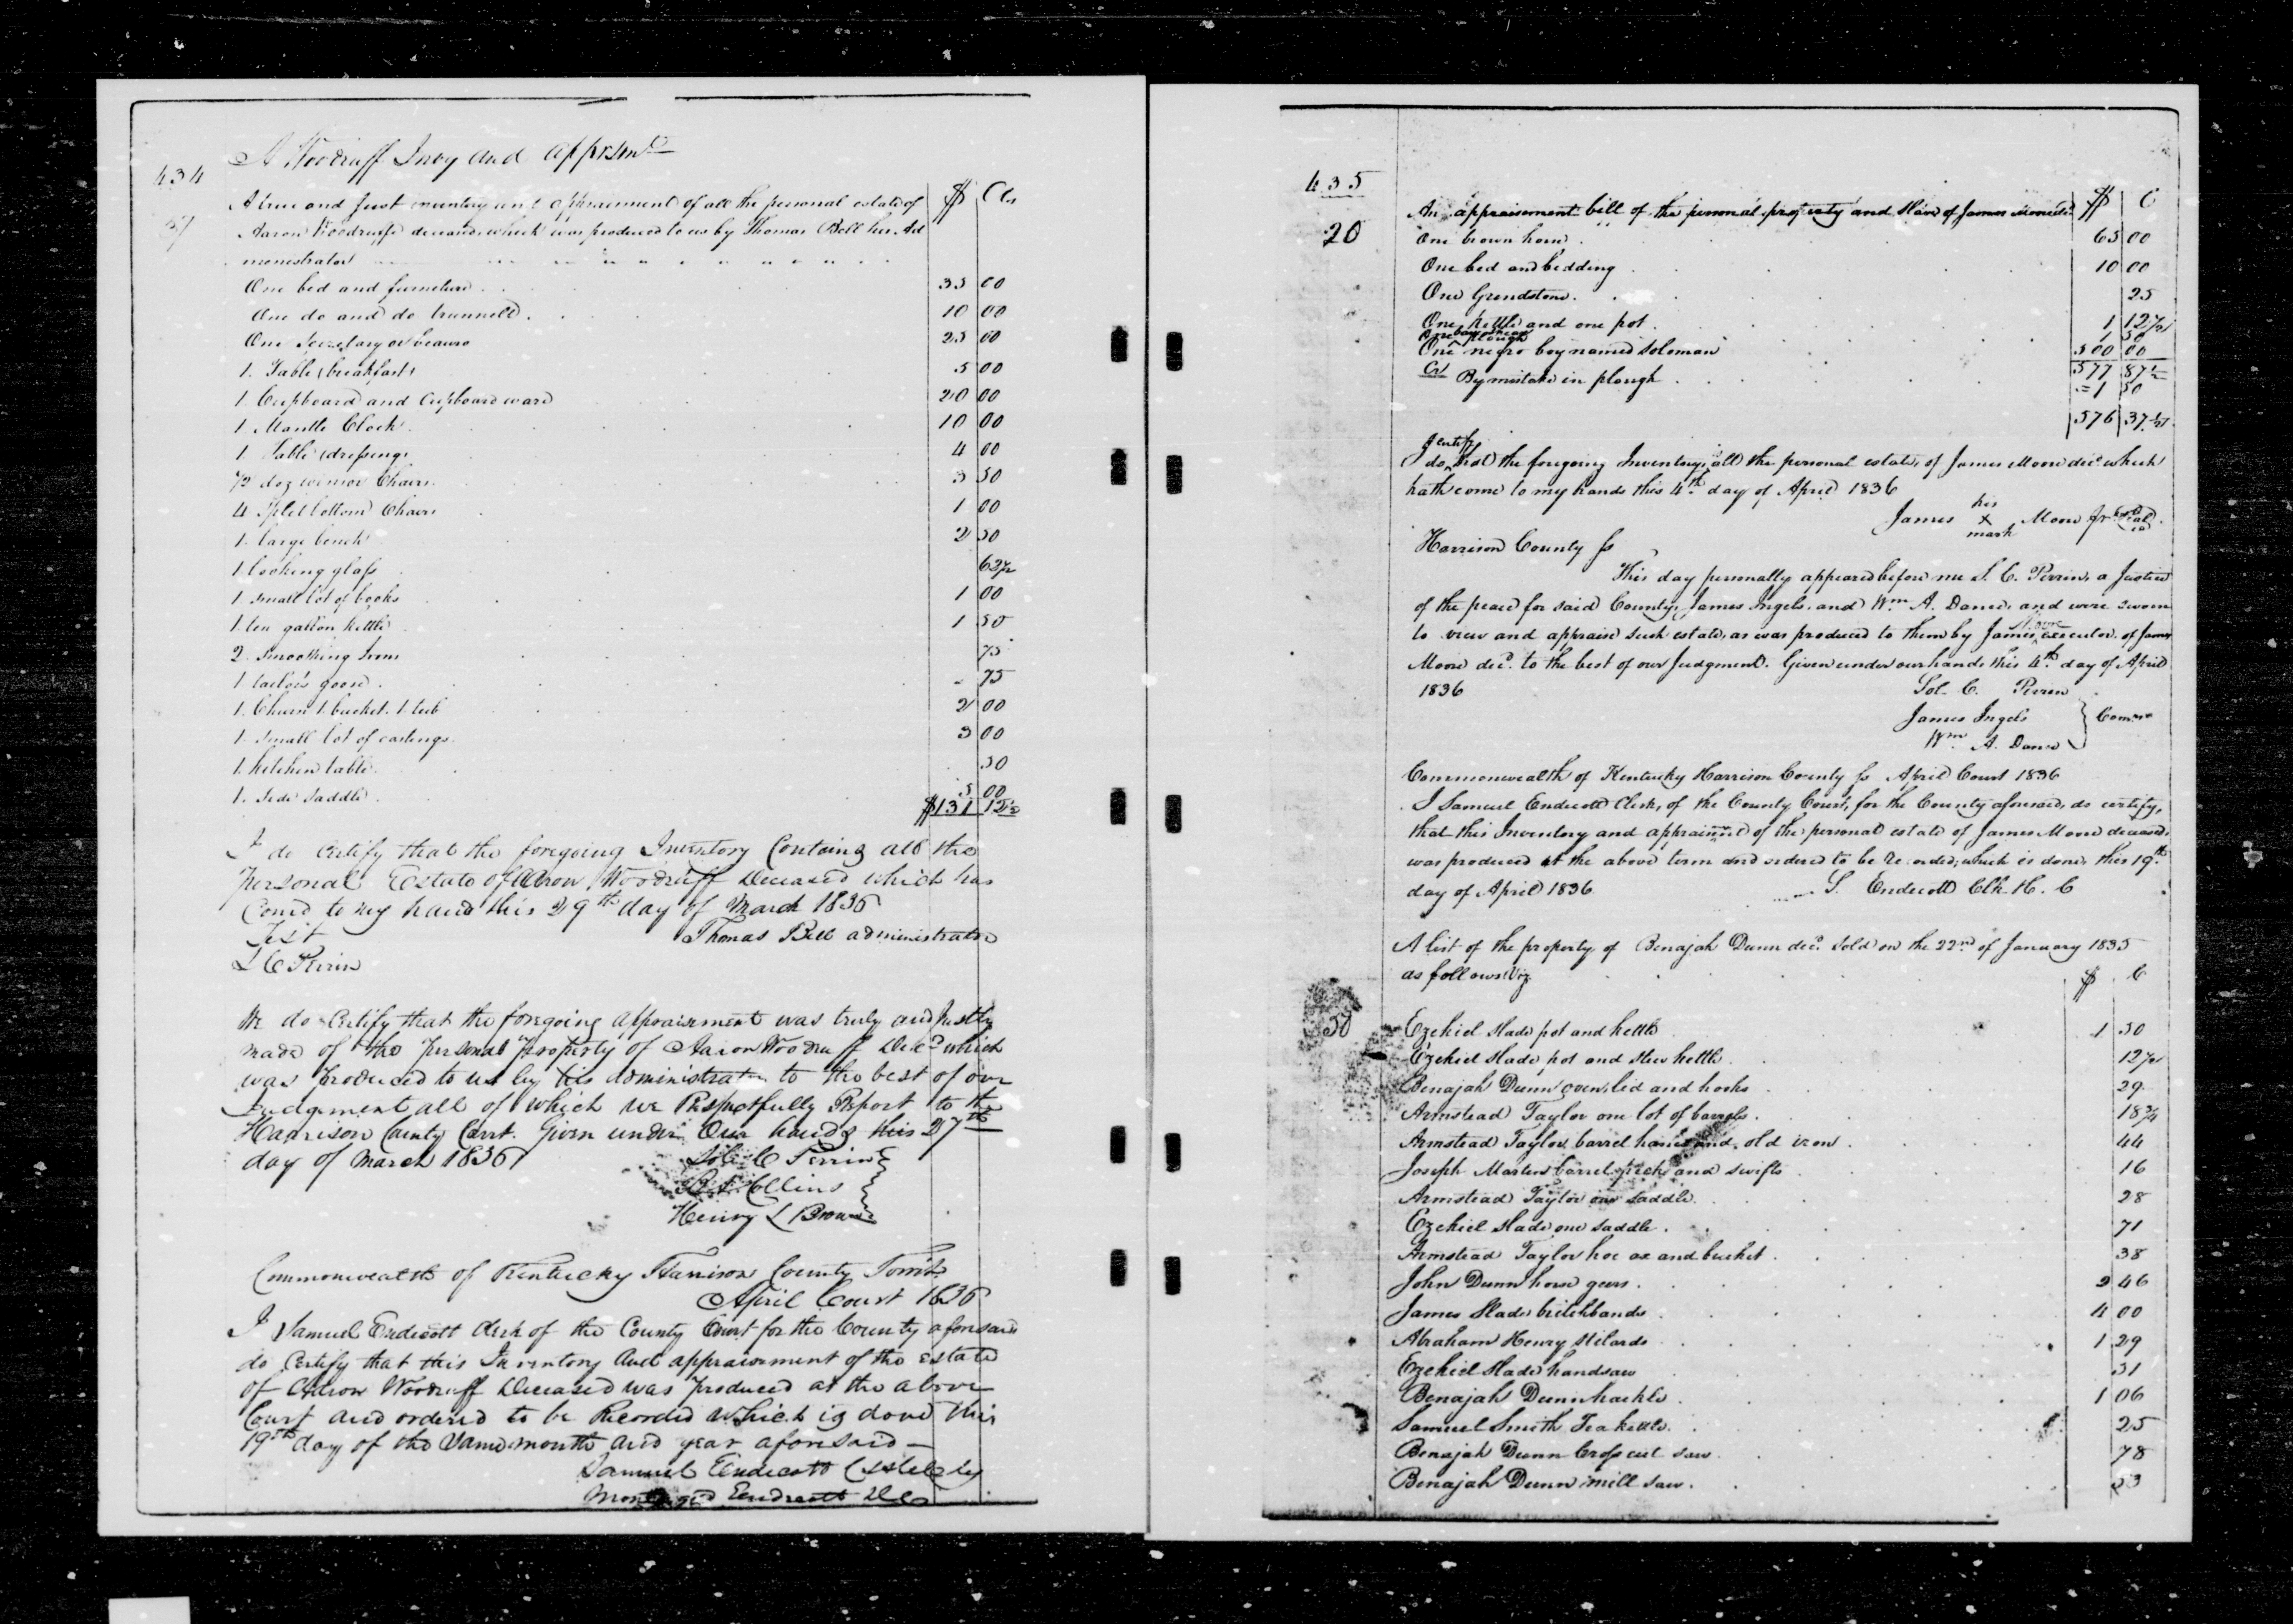 A Woodruff Invy and apprsmt
434
37
$ Cts
A true and Just inventory and appraisment of all the personal estate of
Aaron Woodruff deceased which was produced to us by Thomas Bell his Ad
menestrator
One bed and furneture 35 00
One do and do trunnell 10 00
One Secretary or beauro 25 00
1 Table (breakfast) 5 00
1 Cupboard and Cupboard ward 20 00
1 Mantle Clock 10 00
1 Table (dressing) 4 00
1/2 doz winsor Chairs 3 50
4 Split bottom Chairs 1 00
1 large bench 2 50
1 looking glass 62 1/2
1 small lot of books 1 00
1 ten gallon kettle 1 50
2 Smoothing Irons 75
1 tailors goose 75
1 Churn 1 bucket 1 tub 2 00
1 small lot of castings 3 00
1 kitchen table 50
1 Side Saddle 5 00
$131 12 1/2
I do Certify that the foregoing Inventory Containg all the
Personal Estate of Aron Woodruff Deceased which has
Comd to my hand this 29th day of March 1836
Test Thomas Bell administrator
S C Perrin
We do Certify that the foregoing appraisment was truly and Justly
made of the personal property of Aaron Woodruff Decd which
was produced to us by his administrator to the best of our
Judgement all of which we Respectfully Report to the
Harrison County Court. Given under Our hands this 27th
day of March 1836
Sol. C Perrin
Collins
Henry L Brown
Commonwealth of Kentucky Harrison County Towit
April Court 1836
I Samuel Endicott Clerk of the County Court for the County aforesaid
do Certify that this Inventory and appraisement of the Estate
of Aaron Woodruff Deceased was produced at the above
Court and ordered to be Recorded which is done this
19th day of the same month and year aforesaid —
Samuel Endicott by
Endicott DC
435
20
An appraisement bill of the personal property and Slave of James Moore decd $ C
One brown horse 65 00
One bed and bedding 10 00
One Grendstone 25
One kettle and one pot 1 12 1/2
One plough 1 50
One negro boy named Soloman 500 00
577 87 1/2
Cr By mistake in plough = 1 50
576 37 1/2
I certify
do that the foregoing Inventory, all the personal estate, of James Moore decd which
hath come to my hands this 4th day of April 1836
his
James X Moore Jr Seal
mark
Harrison County ss
This day personally appeared before me S. C. Perrin, a Justice
of the peace for said County, James Ingels, and Wm A. Dance, and were sworn
to view and appraise such estate, as was produced to them by James Moore executor of James
Moore decd. to the best of our Judgment. Given under our hands this 4th day of April
1836 Sol C. Perrin
James Ingels
Wm A. Dance
Comrs
Commonwealth of Kentucky Harrison County ss April Court 1836
I Samuel Endicott Clerk, of the County Court, for the County aforesaid, do certify,
that this Inventory and appraisment of the personal estate of James Moore deceased,
was produced at the above term and ordered to be Recorded, which is done, this 19th
day of April 1836 S. Endicott Clk H. C
A list of the property of Benajah Dunn decd. Sold on the 22nd of January 1835
as follows Viz. $ C
50
Ezekiel Slade pot and kettle 1 50
Ezekiel Slade pot and stew kettle 12 1/2
Benajah Dunn oven, lid and hooks 29
Armstead Taylor one lot of barrels 18 3/4
Armstead Taylor barrel hames and old iron 44
Joseph Martin barrel and swifts 16
Armstead Taylor one saddle 28
Ezekiel Slade one saddle 71
Armstead Taylor hoe ax and bucket 38
John Dunn horse gears 2 46
James Slade britchbands 4 00
Abraham Henry Stilards 1 29
Ezekiel Slade handsaw 31
Benajah Dunn hackle 1 06
Samuel Smith Teakettle 25
Benajah Dunn Cross cut saw 78
Benajah Dunn mill saw 53